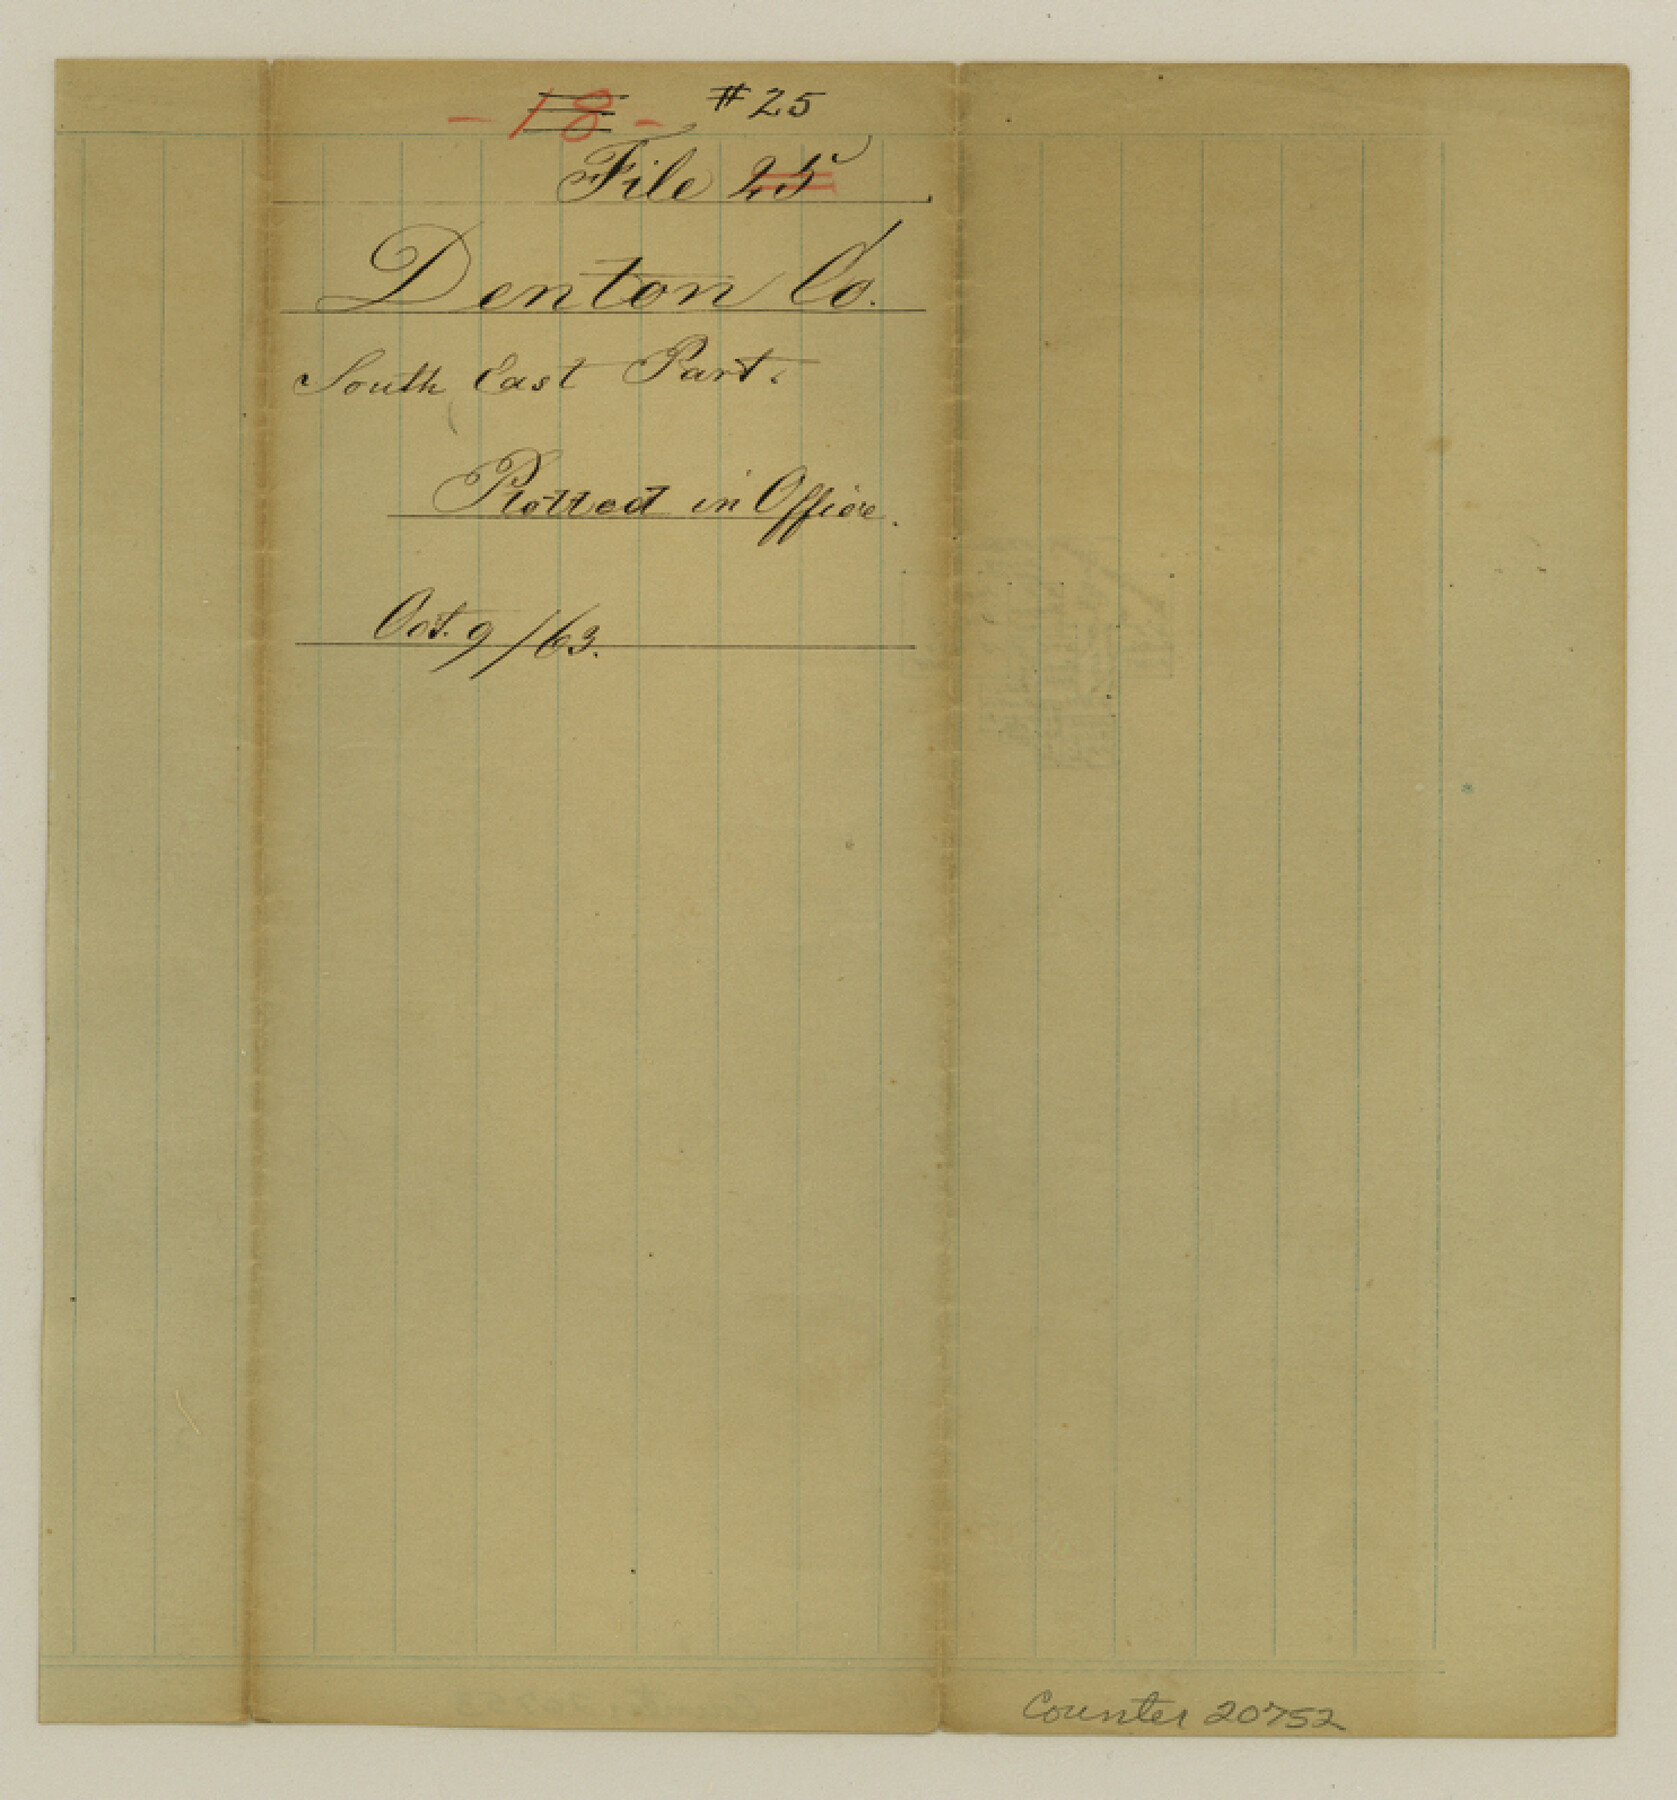 -18- #25
File 25
Denton Co.
South East Part.
Plotted in Office.
Oct. 9/63.
Counter 20752